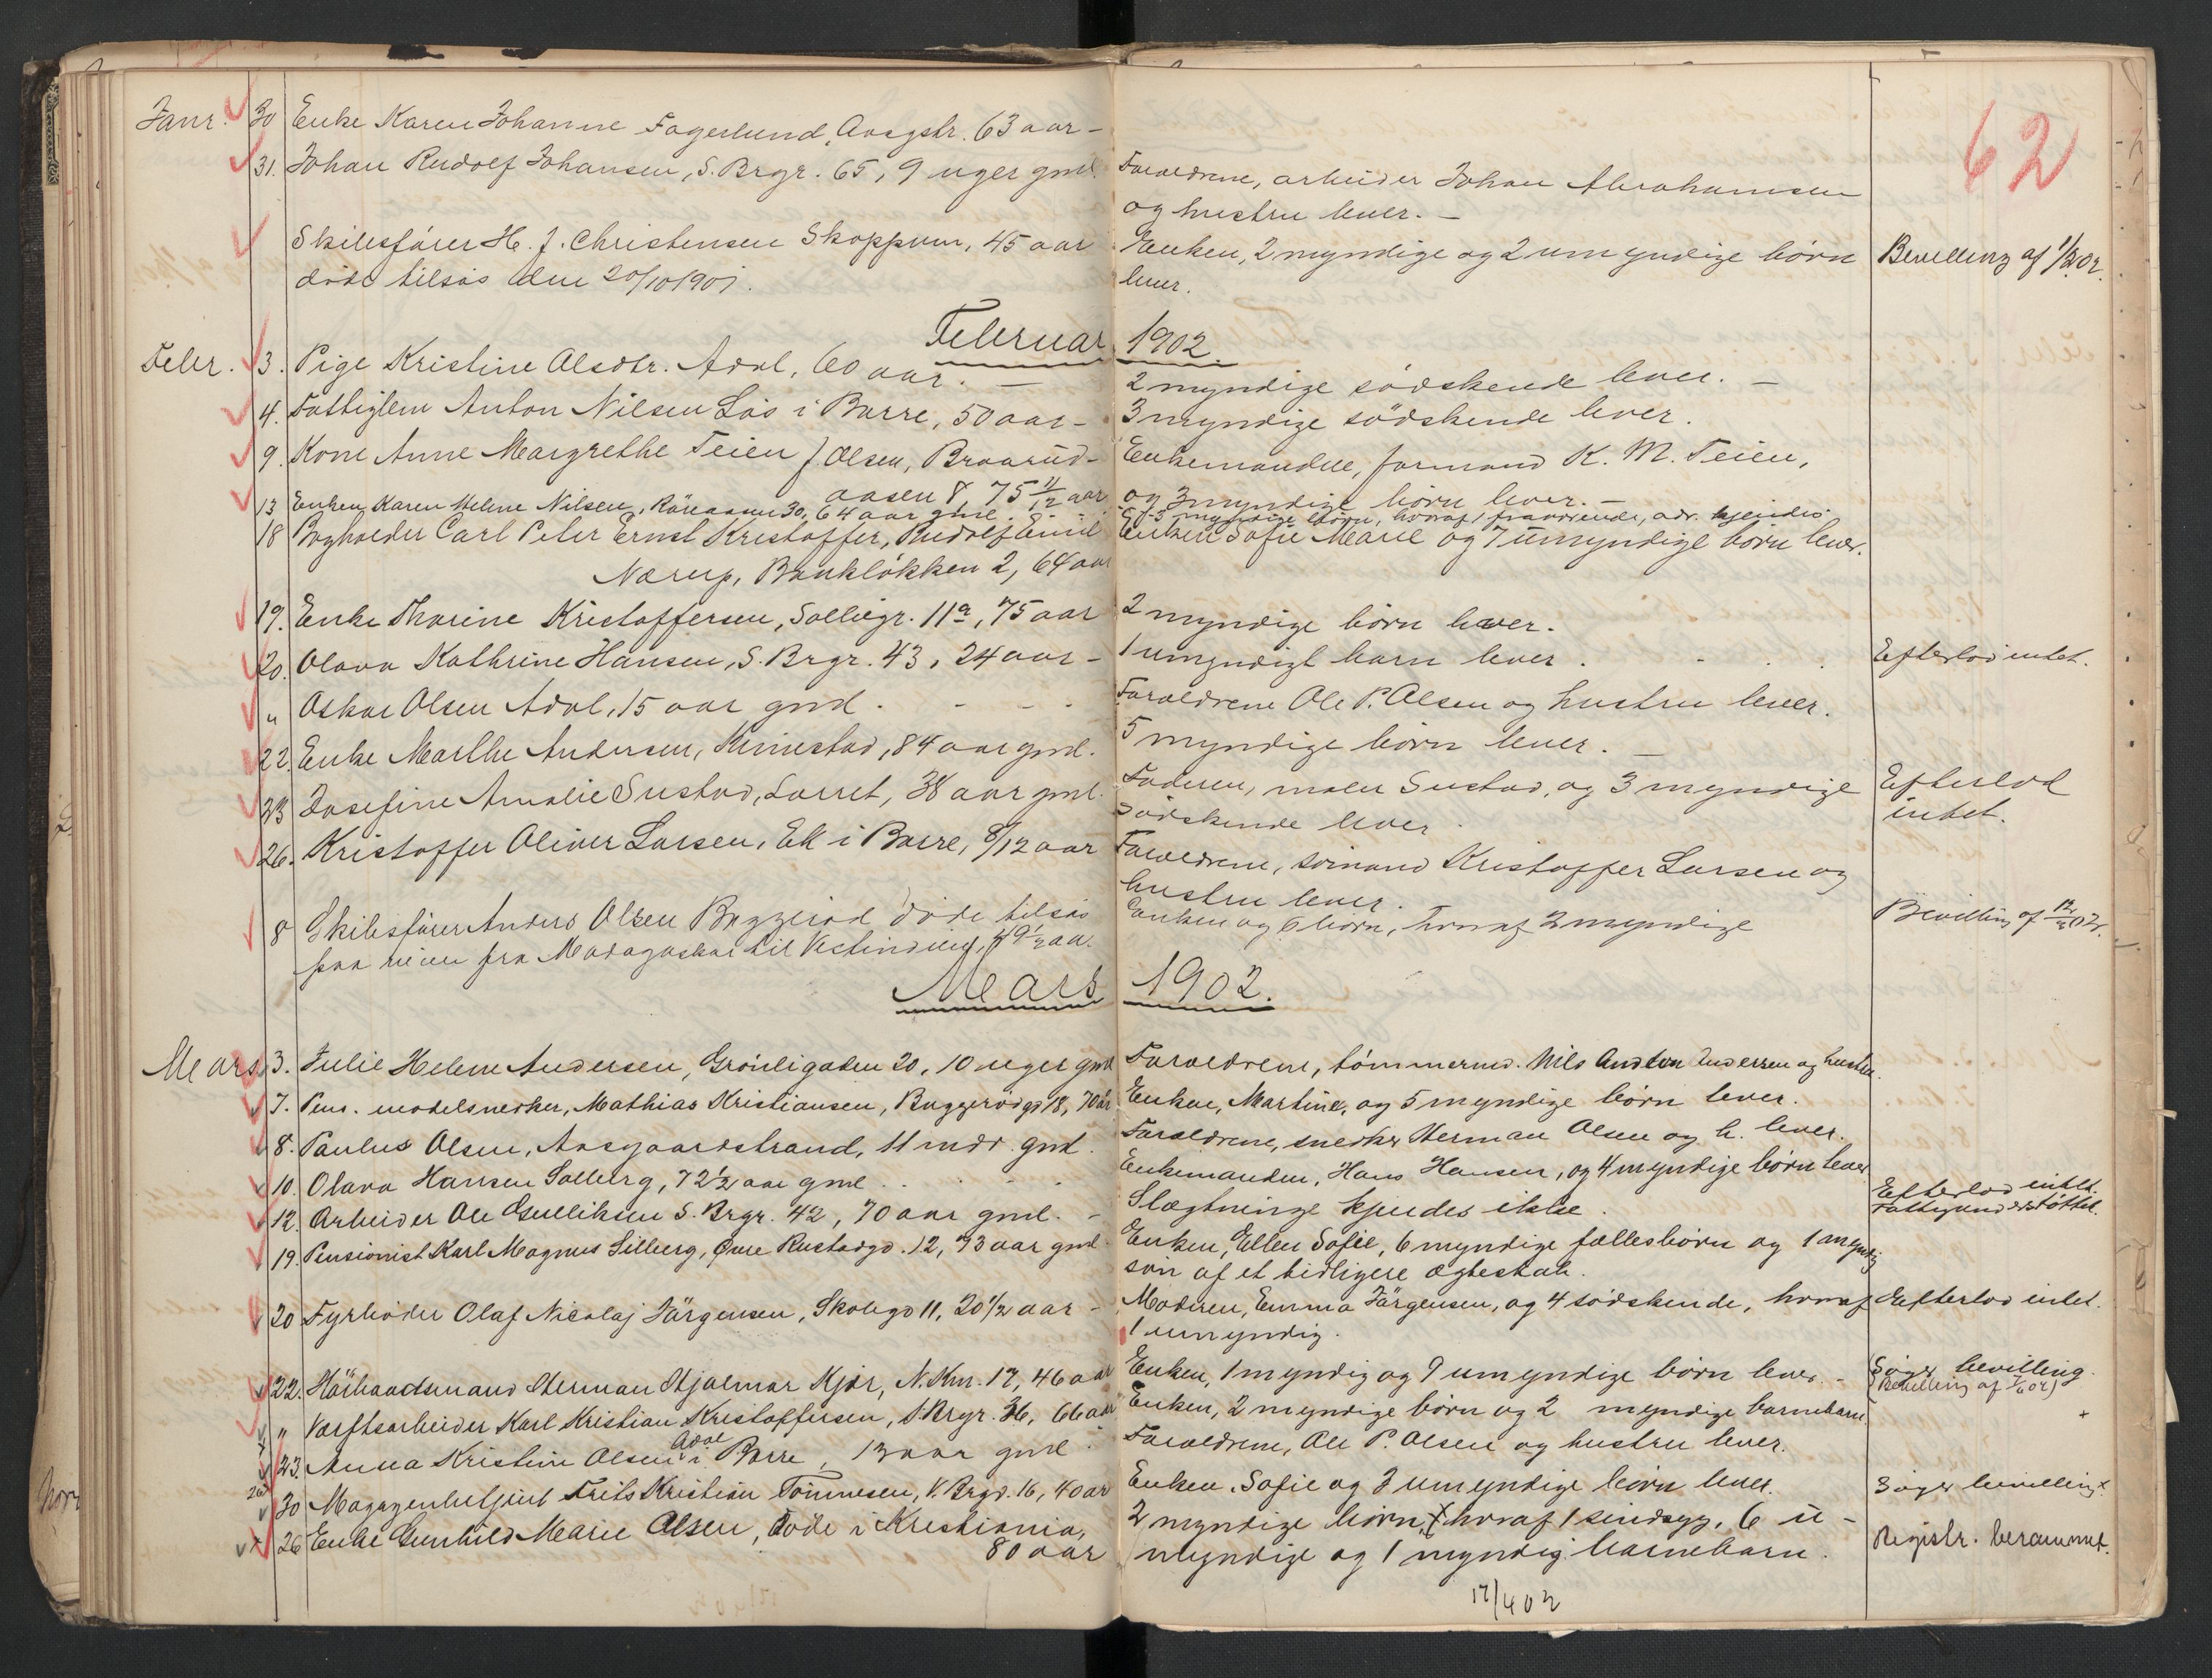 62
Janr. 30 Enke Karen Johanne Fagerlund, Aasgstr. 63 aar -
31. Johan Rudolf Johansen, S. Brgr. 65, 9 uger gml. Forældrene, arbeider Johan Abrahamsen
og hustru lever. -
Skibsfører H. J. Christensen Skoppum, 45 aar Enken, 2 myndige og 2 umyndige børn Bevilling af 1/2 02.
døde tilsøs den 20/10 1901. lever.
Februar 1902.
Febr. 3. Pige Kristine Olsdtr. Adal, 60 aar. - 2 myndige södskende lever. -
4. Fattiglem Anton Nilsen Løs i Borre, 50 aar - 3 myndige södskende lever.
9. Kone Anne Margrethe Teien f. Olsen, Braarud- Enkemanden, formand K. M. Teien,
aasen 8, 75 11/12 aar og 3 myndige børn lever. -
13 Enken Karen Helene Nilsen, Röreasen 30, 64 aar gml. 5 myndige börn, hvoraf 1 fraværende, adr. kjendes.
18 Bogholder Carl Peter Ernst Kristoffer, Rudolf Emil Enken Sofie Marie og 7 umyndige børn lever.
Nærup, Bankløkken 2, 64 aar
19. Enke Thorine Kristoffersen, Solliegr. 11a, 75 aar 2 myndige börn lever.
20. Olava Kathrine Hansen, S. Brgr. 43, 24 aar - 1 umyndigt barn lever. Efterlod intet.
" Oskar Olsen Adal, 15 aar gml. Forældrene Ole P. Olsen og hustru lever.
22. Enke Marthe Andersen, Kinnestad, 84 aar gml. 5 myndige børn lever. -
23 Josefine Amalie Sustad, Lorret, 38 aar gml. Faderen, maler Sustad, og 3 myndige Efterlod
södskende lever. intet.
26. Kristoffer Oliver Larsen, Ek i Borre, 8/12 aar Forældrene, sömand Kristoffer Larsen og
hustru lever.
8 Skibsfører Anders Olsen Baggerød døde tilsøs Enken og 6 børn, hvoraf 2 myndige Bevilling af 02.
paa reisen fra Madagaskar til Vestindien, 49 1/2 aar.
Mars 1902.
Mars 3. Julie Helene Andersen, Grönligaden 20, 10 uger gml Forældrene, tömmermd. Nils Andton Anderssen og hustru.
7. Pens. modelsnedker, Mathias Kristiansen, Baggerødgd 18, 70 aar Enken, Martine, og 5 myndige börn lever.
8. Paulus Olsen, Aasgaardstrand, 11 mdr. gml. Forældrene, snedker Herman Olsen og h. lever.
10. Olava Hansen Solberg, 72 1/2 aar gml. Enkemanden, Hans Hansen, og 4 myndige börn lever
12. Arbeider Ole Gulliksen S. Brgr. 42, 70 aar gml. - Slægtninge kjendes ikke. Efterlod intet. Fattigunderstøttet.
19. Pensionist Karl Magnus Silberg, Øvre Rustadgd. 12, 73 aar gml Enken, Ellen Sofie, 6 myndige fællesbörn og 1 myndig
sön af et tidligere ægteskab.
20 Fyrbøder Olaf Nicolaj Jørgensen, Skolegd 11, 20 1/2 aar - Moderen, Emma Jørgensen, og 4 södskende, hvoraf Efterlod intet.
1 umyndig.
22. Haabaadsmand Herman Hjalmar Kjær, N. Km. 17, 46 aar Enken, 1 myndig og 9 umyndige børn lever. - Søger bevilling.
" Værftsarbeider Karl Kristian Kristoffersen, S. Brgr. 36, 66 aar Enken, 2 myndige börn og 2 myndige barnebarn
23. Anna Kristine Olsen Adal i Borre, 13 aar gml Forældrene, Ole P. Olsen og hustru lever.
30 Magazenbetjent Frits Kristian Tönnesen, V. Brgd. 16, 40 aar Enken Sofie og 3 umyndige børn lever. Søger bevilling
26 Enke Gunhild Marie Olsen, døde i Kristiania, 2 myndige børn, hvoraf 1 sindsyg, 6 u-
80 aar myndige og 1 myndig barnebarn. Registr. berammet.
17/4 02